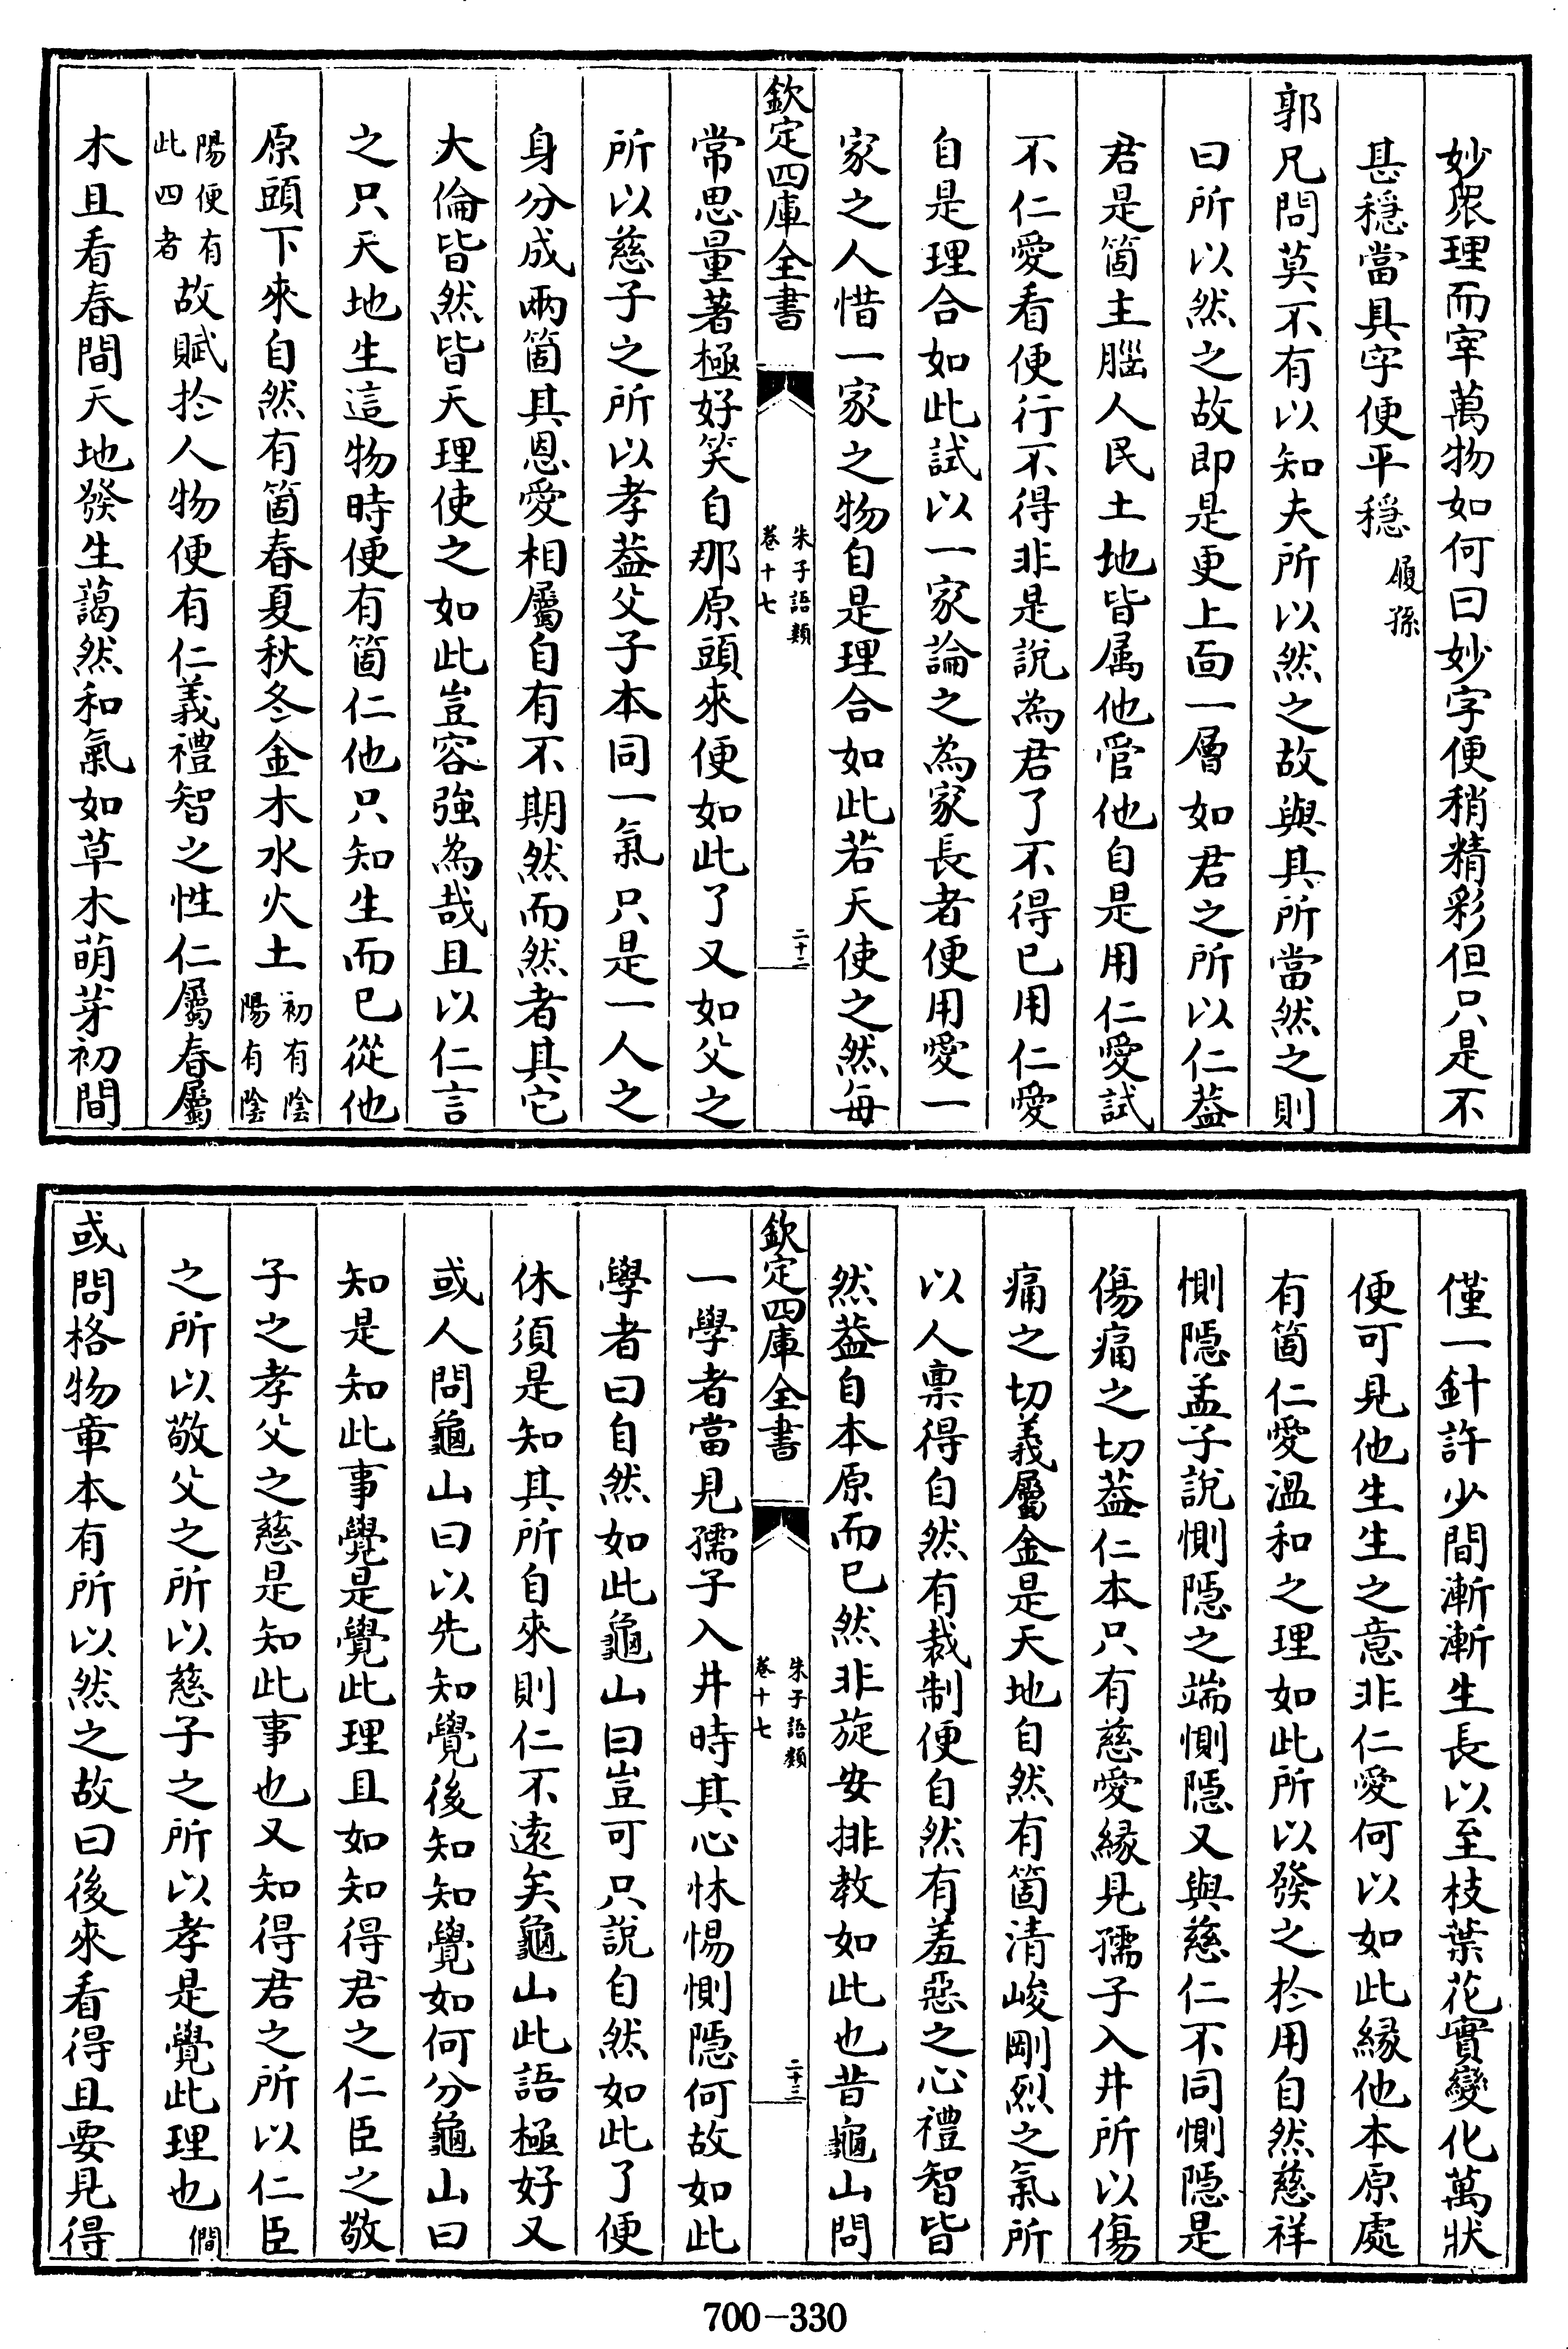 妙衆理而宰萬物如何曰妙字便稍精彩但只是不
甚穩當具字便平穩履孫
郭兄問莫不有以知夫所以然之故與其所當然之則
曰所以然之故即是更上面一層如君之所以仁葢
君是箇主腦人民土地皆属他管他自是用仁愛試
不仁愛看便行不得非是說為君了不得已用仁愛
自是理合如此試以一家論之為家長者便用愛一
家之人惜一家之物自是理合如此若天使之然每
欽定四庫全書
朱子語類
卷十七
二十二
常思量著極好笑自那原頭來便如此了又如父之
所以慈子之所以孝葢父子本同一氣只是一人之
身分成兩箇其恩愛相屬自有不期然而然者其它
大倫皆然皆天理使之如此豈容強為哉且以仁言
之只天地生這物時便有箇仁他只知生而已從他
原頭下來自然有箇春夏秋冬金木水火土初有陰
陽有陰
陽便有
此四者故賦於人物便有仁義禮智之性仁屬春屬
木且看春間天地發生藹然和氣如草木萌芽初間
僅一針許少間漸漸生長以至枝葉花實變化萬狀
便可見他生生之意非仁愛何以如此緣他本原處
有箇仁愛溫和之理如此所以發之於用自然慈祥
惻隠孟子說惻隠之端惻隠又與慈仁不同惻隠是
傷痛之切葢仁本只有慈愛緣見孺子入井所以傷
痛之切義屬金是天地自然有箇清峻剛烈之氣所
以人禀得自然有裁制便自然有羞惡之心禮智皆
然葢自本原而已然非旋安排教如此也昔龜山問
欽定四庫全書
朱子語類
卷十七
二十三
一學者當見孺子入井時其心怵惕惻隠何故如此
學者曰自然如此龜山曰豈可只說自然如此了便
休須是知其所自來則仁不遠矣龜山此語極好又
或人問龜山曰以先知覺後知知覺如何分龜山曰
知是知此事覺是覺此理且如知得君之仁臣之敬
子之孝父之慈是知此事也又知得君之所以仁臣
之所以敬父之所以慈子之所以孝是覺此理也僩
或問格物章本有所以然之故曰後來看得且要見得
700-330